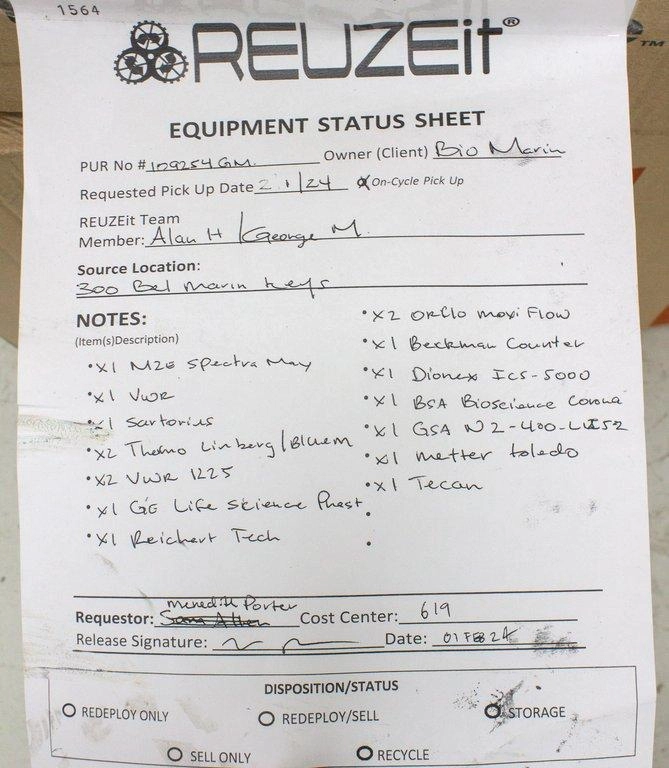 1564
REUZEit®
TM
EQUIPMENT STATUS SHEET
PUR No # 109254GM Owner (Client) Bio Marin
Requested Pick Up Date 2 1/24 On-Cycle Pick Up
REUZEit Team
Member: Alan H / George M.
Source Location:
300 Bel Marin Keys
NOTES:
(Item(s)Description)
•x1 M2E Spectra Max
•x1 VWR
•x1 Sartorius
•x2 Thermo Linberg/Bluem
•x2 VWR 1225
•x1 GE Life Science Phast
•x1 Reichert Tech
•x2 Orflo Moxi Flow
•x1 Beckman Counter
•x1 Dionex ICS-5000
•x1 BSA Bioscience Corona
•x1 GSA N2-400-
•x1 Metter toledo
•x1 Tecan
Meredith Porter
Requestor: Sam Allen Cost Center: 619
Release Signature: Date: 01 FEB 24
DISPOSITION/STATUS
REDEPLOY ONLY REDEPLOY/SELL STORAGE
SELL ONLY RECYCLE